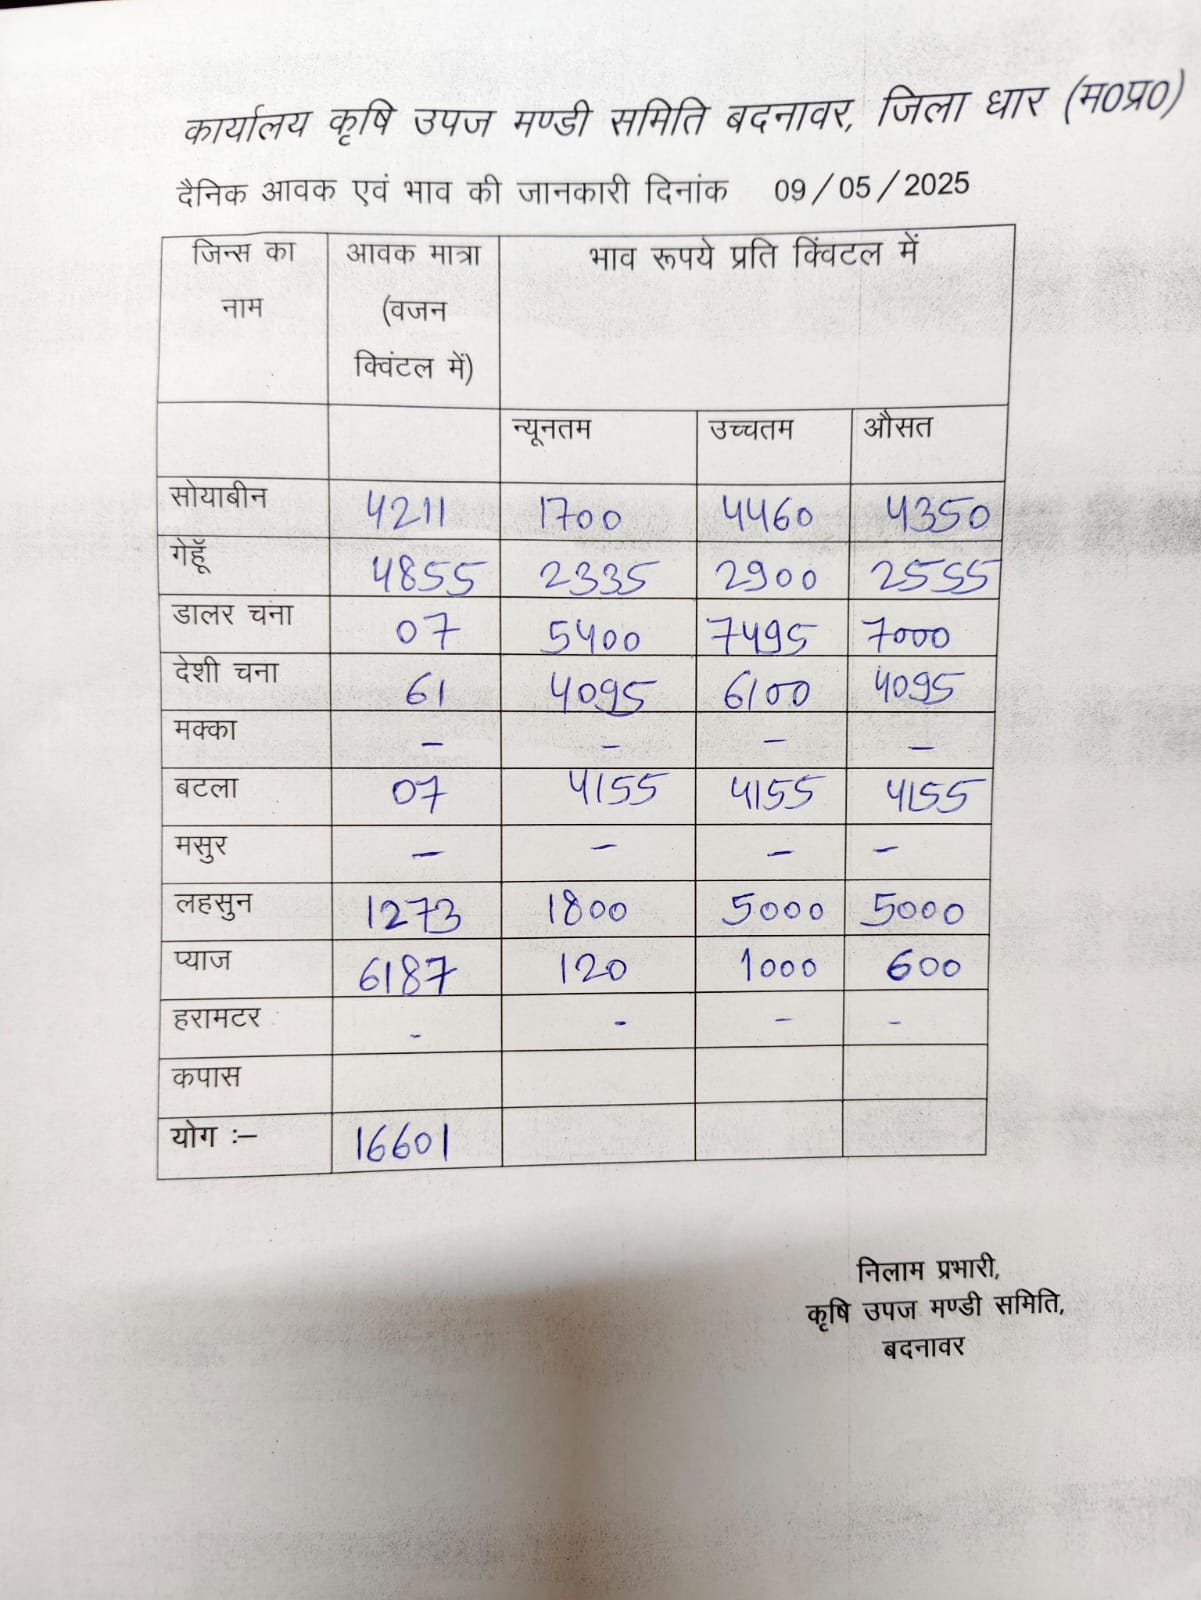 कार्यालय कृषि उपज मण्डी समिति बदनावर, जिला धार (म0प्र0)
दैनिक आवक एवं भाव की जानकारी दिनांक 09/05/2025
जिन्स का नाम आवक मात्रा (वजन क्विंटल में) भाव रूपये प्रति क्विंटल में
न्यूनतम उच्चतम औसत
सोयाबीन 4211 1700 4460 4350
गेहूॅ 4855 2335 2900 2555
डालर चना 07 5400 7495 7000
देशी चना 61 4095 6100 4095
मक्का - - - -
बटला 07 4155 4155 4155
मसुर - - - -
लहसुन 1273 1800 5000 5000
प्याज 6187 120 1000 600
हरामटर - - - -
कपास
योग :– 16601
निलाम प्रभारी,
कृषि उपज मण्डी समिति,
बदनावर